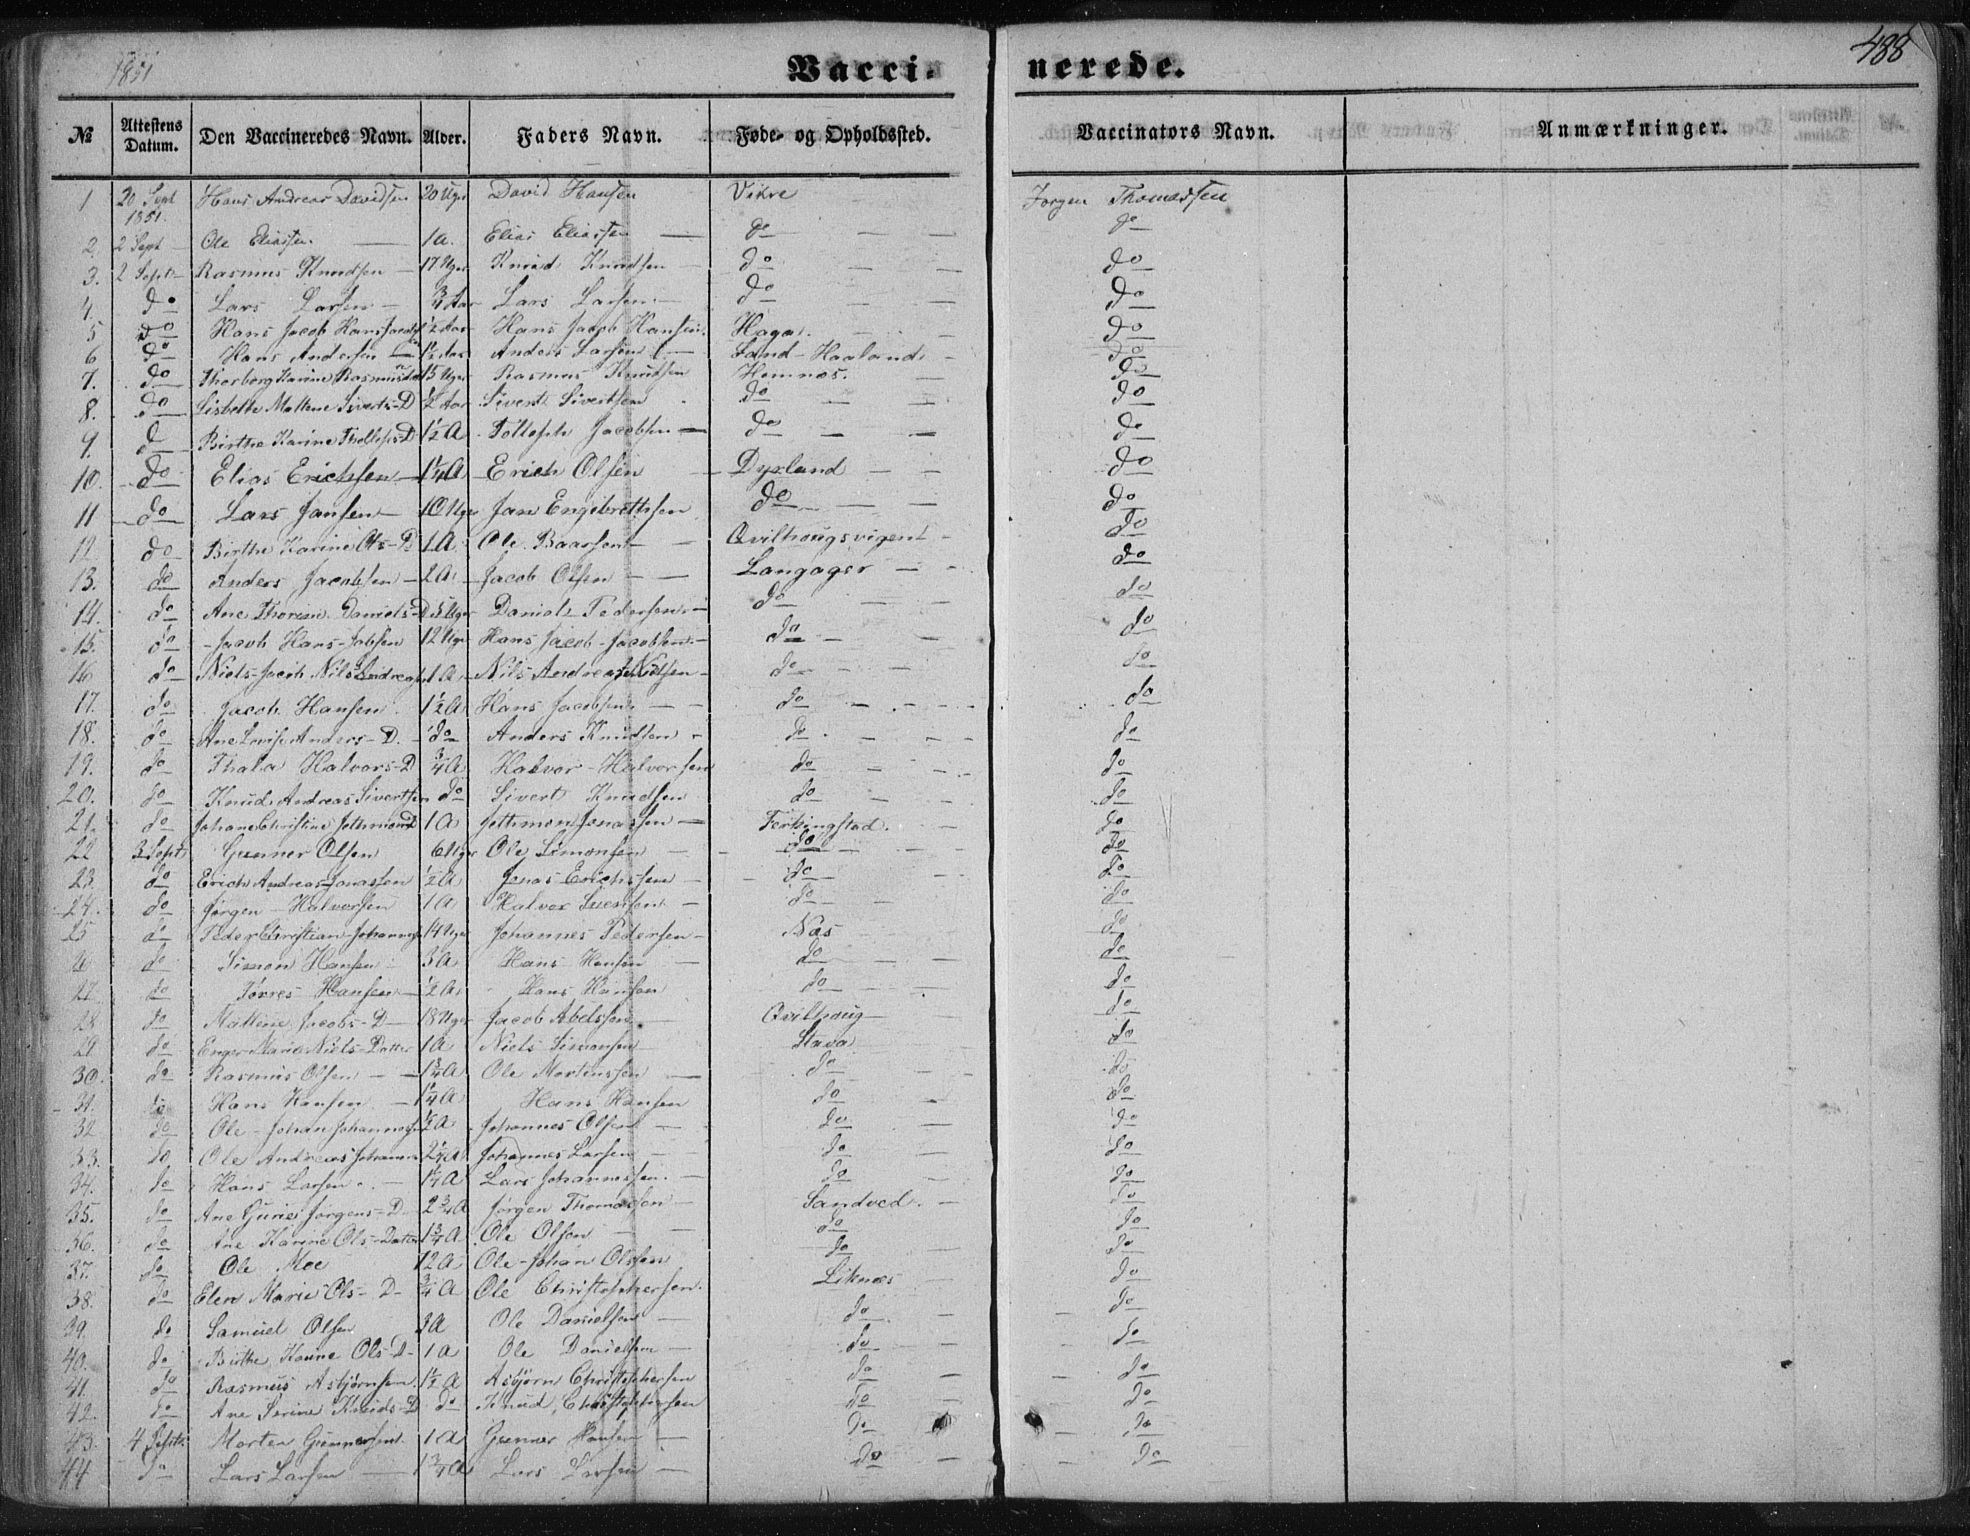 1851
Vacci- nerede.
488
№ Attestens Datum. Den Vaccineredes Navn. Alder. Faders Navn. Føde- og Opholdssted. Vaccinators Navn. Anmærkninger.
1 20 Sept 1851. Hans Andreas Davidsen 20 Uger David Hansen Vikre Jørgen Thomassen
2. 2 Sept Ole Eliassen 1 a. Elias Eliassen do do
3. 2 Sept Rasmus Knudsen 17 Uger Knud Knudsen do do
4. do Lars Larsen 3/4 Aar Lars Larsen do do
5 do Hans Jacob Hans Jacobs 1/2 Aar Hans Jacob Hansen Haga do
6 do Hans Andersen 1 1/2 Aar Anders Larsen Sand-Haaland do
7. do Thorborg Karine Rasmus 15 Uger Rasmus Knudsen Hemnæs. do
8. do Lisbethe Maltene Siverts-D 1/2 Aar Sivert Sivertsen do do
9. do Birthe Karine Thollefs-D 1 1/2 A Tollefsh Jacobsen do do
10. do Elias Erichsen 1 1/4 A Erich Olsen Dyrland do
11 do Lars Jansen 10 Uger Jan Engebrethsen do do
12 do Birthe Karine Ols-D 1 A Ole Baarsen Qvilhougsvigen do
13. do Anders Jacobsen 2 A Jacob Olsen Langager do
14. do Ane Thorine Daniels-D 5 Uger Daniel Pedersen do do
15. do Jacob Hans-Jabsen 12 Uger Hans Jacob Jacobsen do do
16 do Niels-Jacob Nils Andreas 1 A Nils Andreas Nilsen do do
17. do Jacob Hansen 1 1/2 A Hans Jacobsen do do
18. do Ane Lovise Anders-D. do Anders Knudsen do do
19. do Thala Halvors-D 3/4 A Halvor Halvorsen do do
20. do Knud Andreas Sivertsen do Sivert Knudsen do do
21. do Johane Christine Jethmond 1 A Jethmon Jonassen Ferkingstad. do
22 3 Sept Gunner Olsen 6 Uger Ole Simonsen do do
23. do Erich Andreas Jonassen 1/2 A Jonas Erichsen do do
24. do Jørgen Halvorsen 1 A Halvor Svensen do do
25 do Peder Christian Johannes 14 Uger Johannes Pedersen Næs do
26 do Simon Hansen 3 A Hans Hansen do do
27. do Tørres Hansen 1/2 A Hans Hansen do do
28 do Maltene Jacobs-D 18 Uger Jacob Abelsen Qvilhoug do
29 do Enger Marie Niels-Datter 1 A Niels Simonsen Stava do
30. do Rasmus Olsen 1 3/4 A Ole Mortensen do do
31. do Hans Hansen 1 1/4 A Hans Hansen do do
32 do Ole-Johan Johannes 1/2 A Johannes Olsen do do
33. do Ole Andreas Johannes 2 1/4 A Johannes Larsen do do
34. do Hans Larsen 1 1/4 A Lars Johannessen do do
35. do Ane Gurie Jørgens-D 2 3/4 A Jørgen Thomassen Sandved. do
36. do Ane Karine Ols-Datter 1 3/4 A Ole Olsen do do
37. do Ole Moe 12 A Ole-Johan Olssen do do
38. do Elen Marie Ols-D 3/4 A Ole Christophersen. Liknæs do
39. do Samuel Olsen 3 A Ole Danielsen do do
40. do Birthe Karine Ols-D 1 A Ole Danielsen do do
41. do Rasmus Asbjørnsen 1 1/2 A Asbjørn Christophersen do do
42. do Ane Serine Knuds-D do Knud Christophersen do do
43. 4 Sept. Morten Gunnersen 1 A Gunner Hansen do do
44 do Lars Larsen 1 3/4 A Lars Larsen do do